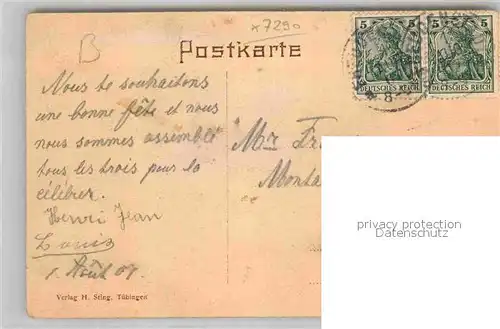 x7290
B
Postkarte
5 5 5 5
DEUTSCHES REICH DEUTSCHES REICH
Nous te souhaitons
une bonne fête et nous
nous sommes assemblé
tous les trois pour la
célébrer.
Henri Jean
Louis
1. Août 07.
Mr Fr
Monta
privacy protection
Datenschutz
Verlag H. Sting, Tübingen